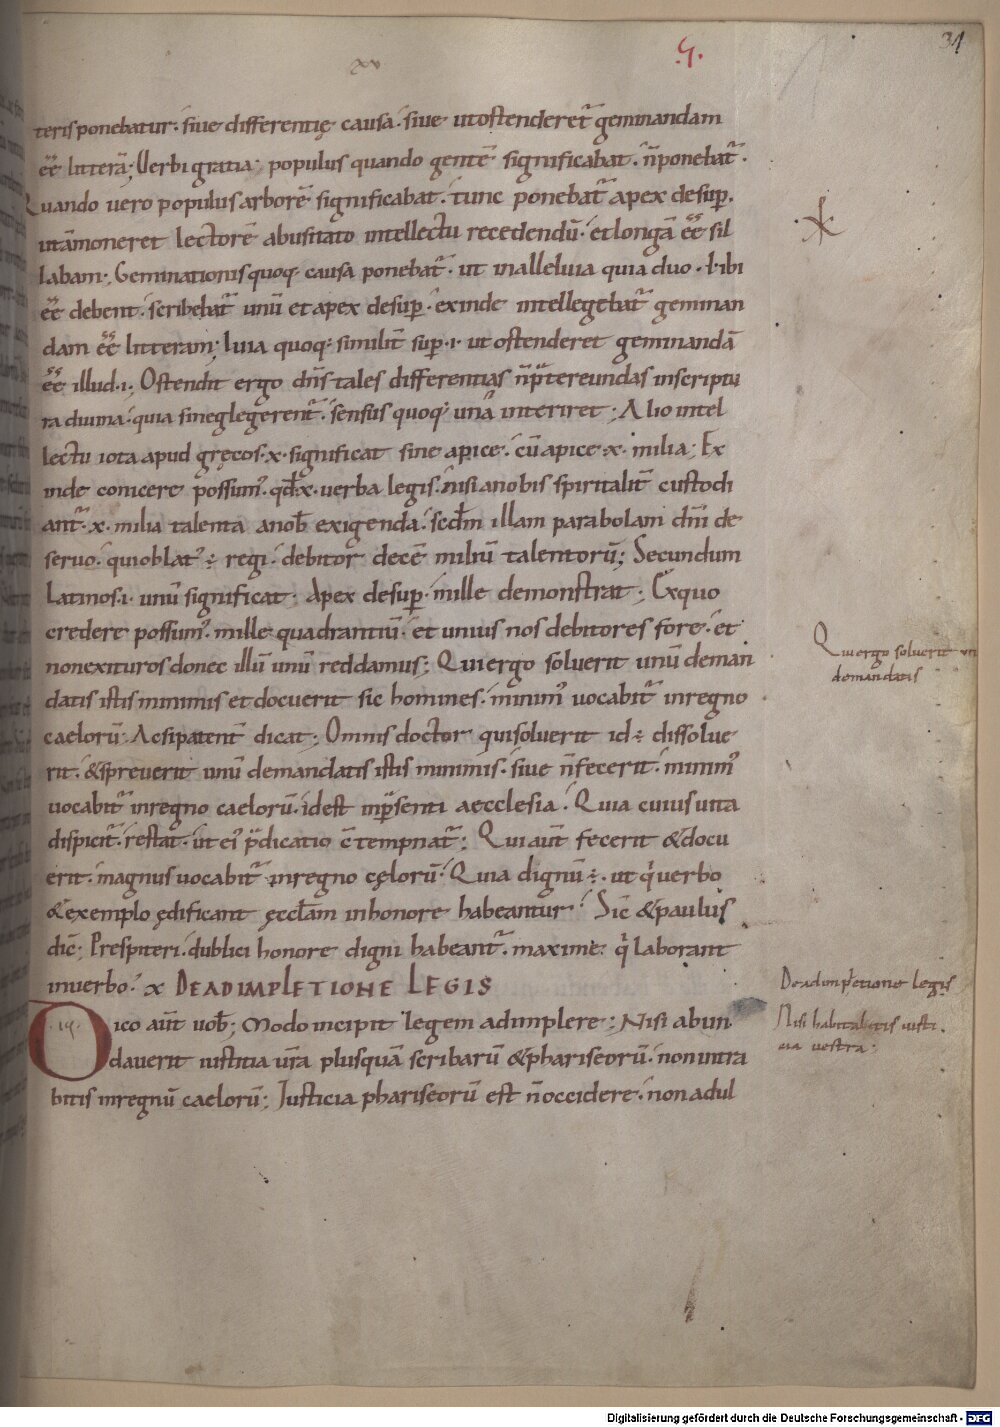 xv
.G.
31
teris ponebatur· siue differentię causa· siue ut ostenderet̃ geminandam
ēē litterā; Verbi gratia· populus quando gentē significabat· n̄ ponebat̃·
Quando uero populus arborē significabat· tunc ponebat̃ apex desup̱·
ut āmoneret lectorē abusitato intellectu recedendū· et longā ēē sil
labam; Geminationis quoq· causa ponebat̃· ut in alleluia quia duo ·l· ibi
ēē debent· scribebat̃ unū et apex desup̱· exinde intellegebat̃ geminan
dam ēē litteram; Iuia quoq· similit̄ sup̱ ·i· ut ostenderet geminandā
ēē illud ·i·; Ostendit ergo dn̄s tales differentias n̄ p̄tereundas in scriptu
ra diuina· quia si neglegerent̃· sensus quoq· una interiret; Alio intel
lectu iota apud gręcos ·x· significat sine apice· cū apice ·x· milia; Ex
inde conicere possum᾽· qd̄ ·x· uerba legis· nisi a nobis spiritalit̄ custodi
ant̃· ·x· milia talenta a nob̄ exigenda· scd̄m illam parabolam dn̄i de
seruo· qui oblat᾽ ÷ regi· debitor decē miliū talentorū; Secundum
Latinos ·i· unū significat· Apex desup̱· mille demonstrat; Ex quo
credere possum᾽· mille quadrantiū· et unius nos debitores fore· et
non exituros donec illū unū reddamus; Qui ergo soluerit unū deman
datis istis minimis et docuerit sic homines· minim᾽ uocabit̃ in regno
caelorū· Ac si patent̄ dicat; Omnis doctor qui soluerit id ÷ dissolue
rit· & spreuerit unū de mandatis istis minimis· siue n̄ fecerit· minim᾽
uocabit̃ in regno caelorū· id est in p̄senti aecclesia· Quia cuius uita
dispicit̃· restat· ut ei᾽ p̄dicatio c̄tempnat̃; Qui aūt fecerit & docu
erit· magnus uocabit̃ in regno cęlorū· Quia dignū ÷· ut qi uerbo
& exemplo ędificant ęccl̄am in honore habeantur· Sic̄ & paulus
dic̄; Prespiteri· dublici honore digni habeant̃· maxime· qi laborant
in uerbo· x DE ADIMPLETIONE LEGIS
Dico aūt uob̄; Modo incipit legem adimplere; Nisi abun
dauerit iustitia ur̄a plusquā scribarū & phariseorū· non intra
bitis in regnū caelorū; Iusticia phariseorū est n̄ occidere· non adul
Qui ergo soluerit un
de mandatis
De adimpletione legis
Nisi habitabitis iusti
cia uestra;
Digitalisierung gefördert durch die Deutsche Forschungsgemeinschaft - DFG